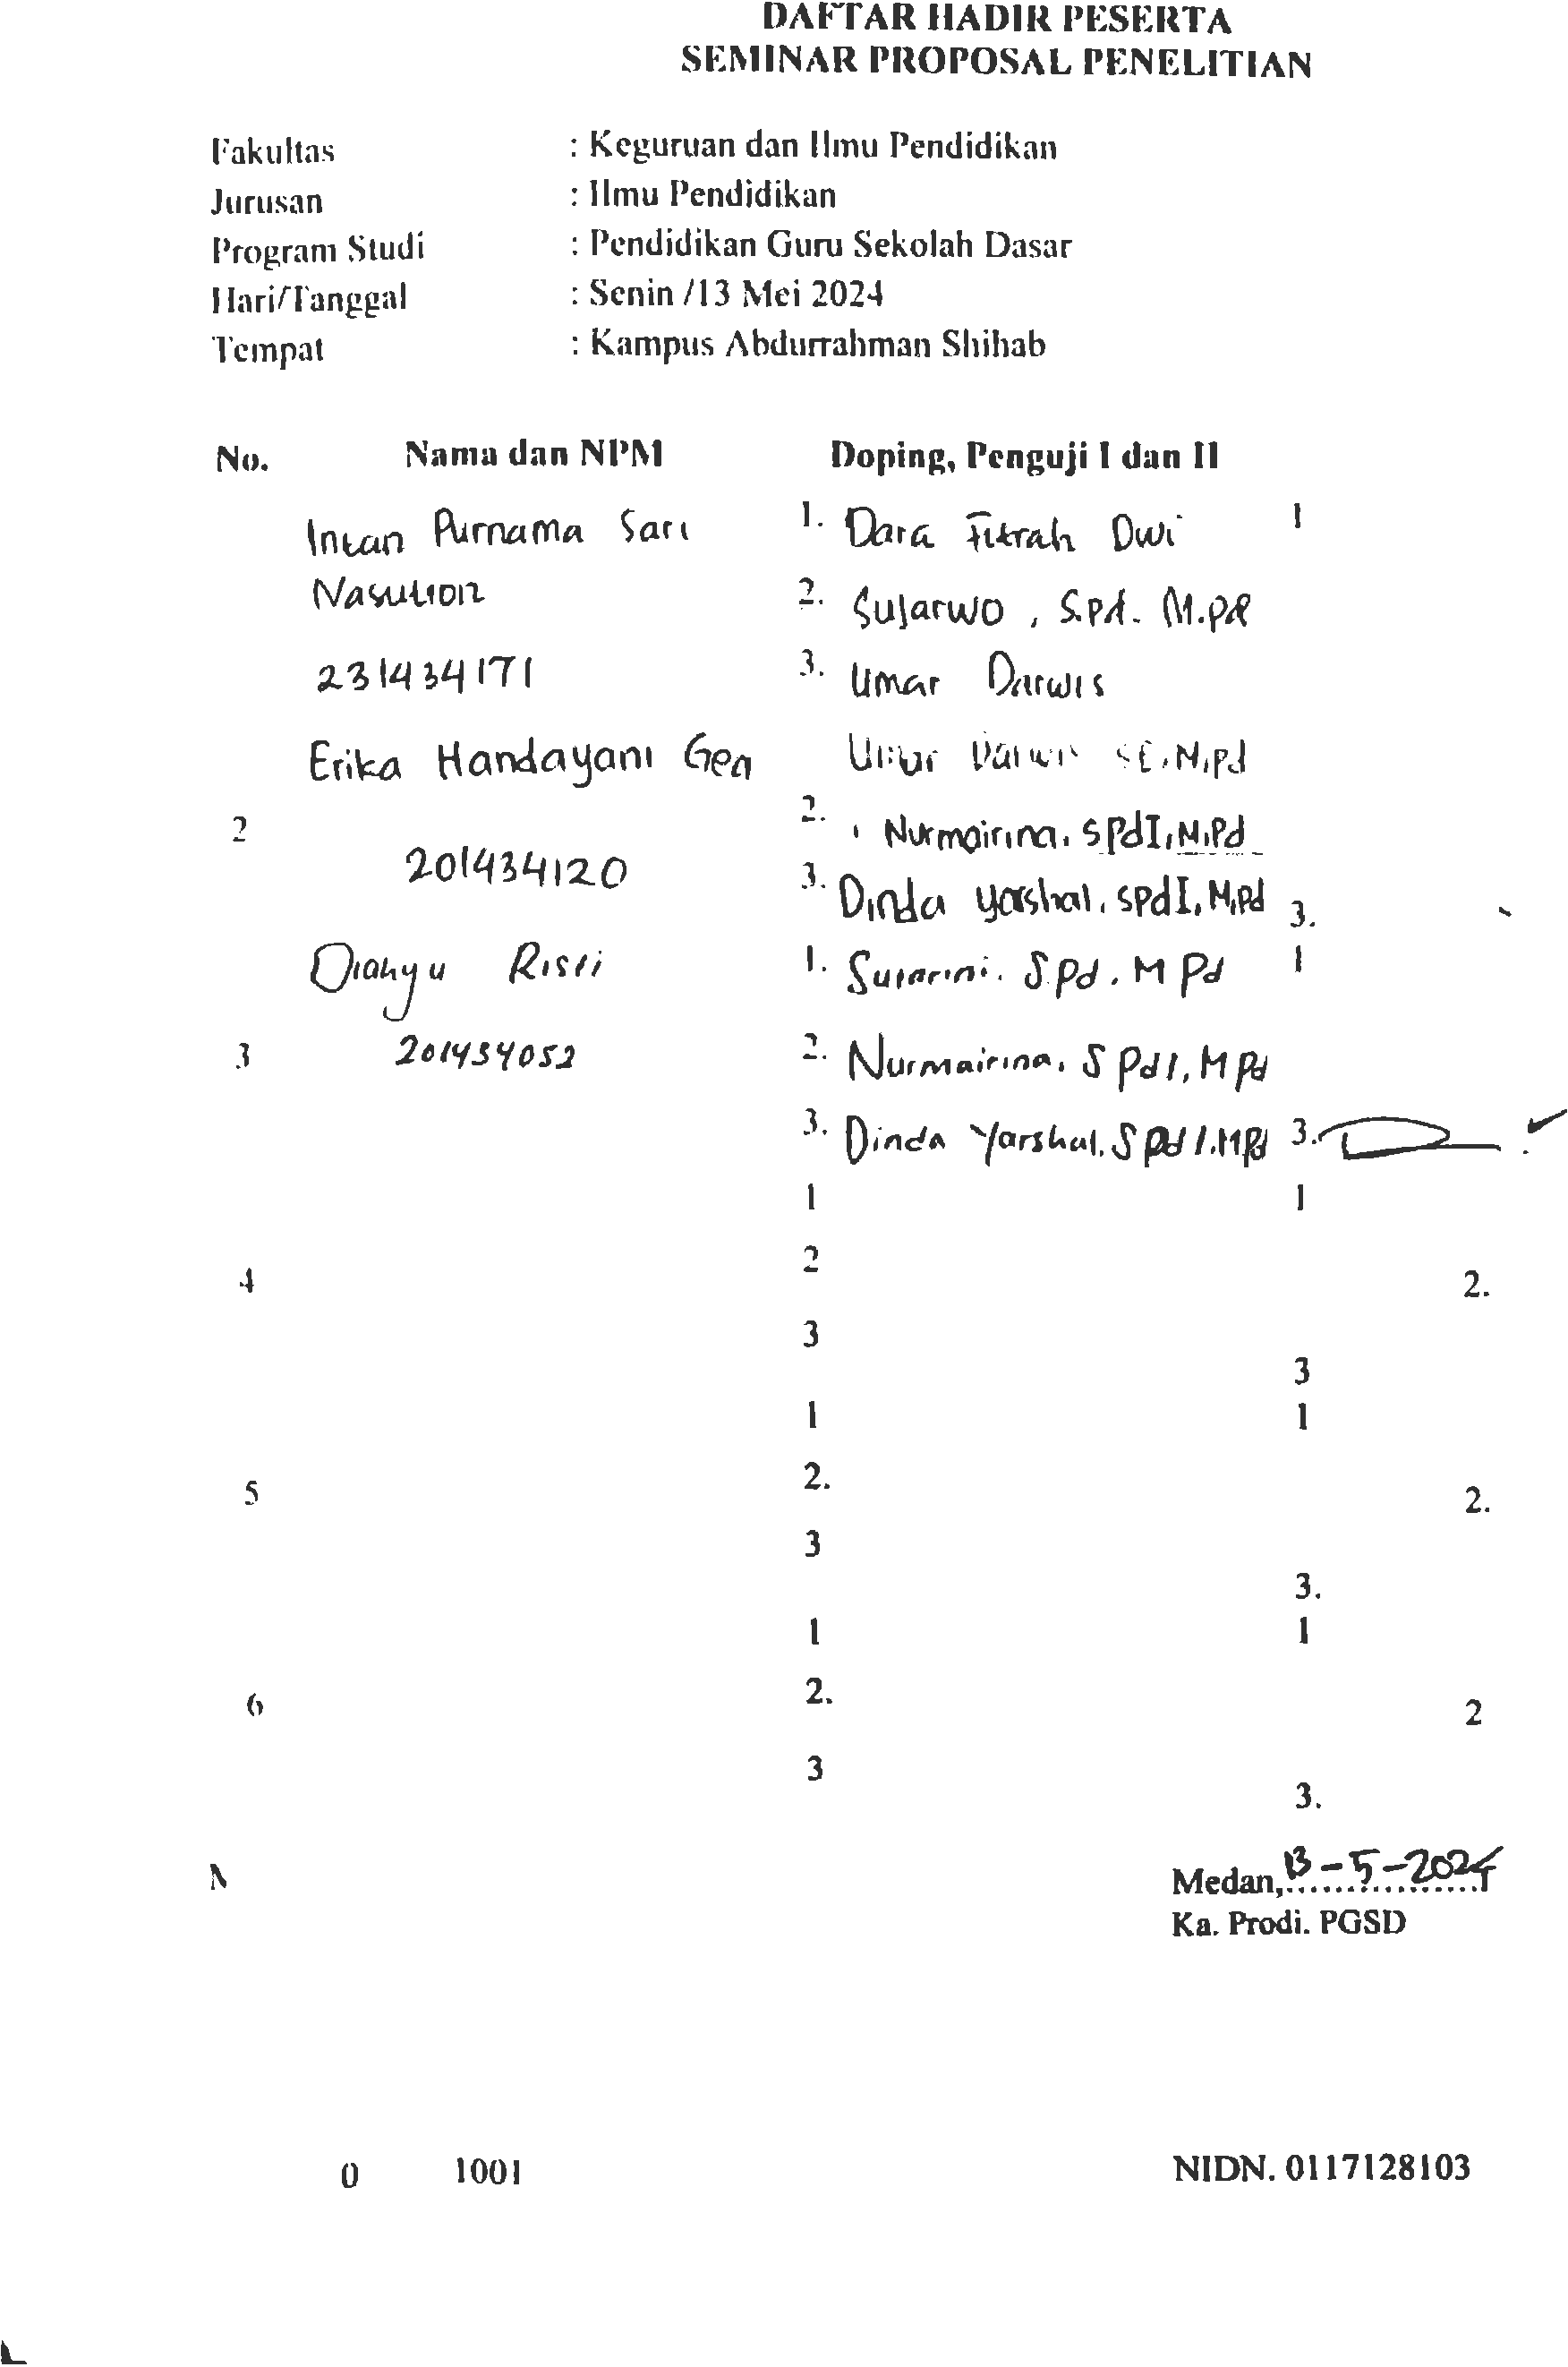 DAFTAR HADIR PESERTA
SEMINAR PROPOSAL PENELITIAN
Fakultas : Keguruan dan Ilmu Pendidikan
Jurusan : Ilmu Pendidikan
Program Studi : Pendidikan Guru Sekolah Dasar
Hari/Tanggal : Senin /13 Mei 2024
Tempat : Kampus Abdurrahman Shihab
No. Nama dan NPM Doping, Penguji I dan II
Intan Purnama Sari 1. Dara Fitrah Dwi 1
Nasution 2. Sujarwo, S.Pd. M.Pd
231434171 3. Umar Darwis
Erika Handayani Gea Umar Darwis SE, M.Pd
2 2. Nurmairina, SPdI, M.Pd
201434120 3. Dinda Yarshal, SPdI, M.Pd 3.
Risti 1. S.Pd, M Pd 1
3 201434052 2. Nurmairina, S PdI, M Pd
3. Dinda Yarshal, S PdI, M Pd 3.
1 1
2
4 2.
3
3
1 1
2.
5 2.
3
3.
1 1
2.
6 2
3
3.
Medan, 13-5-2024
Ka. Prodi. PGSD
0 1001 NIDN. 0117128103